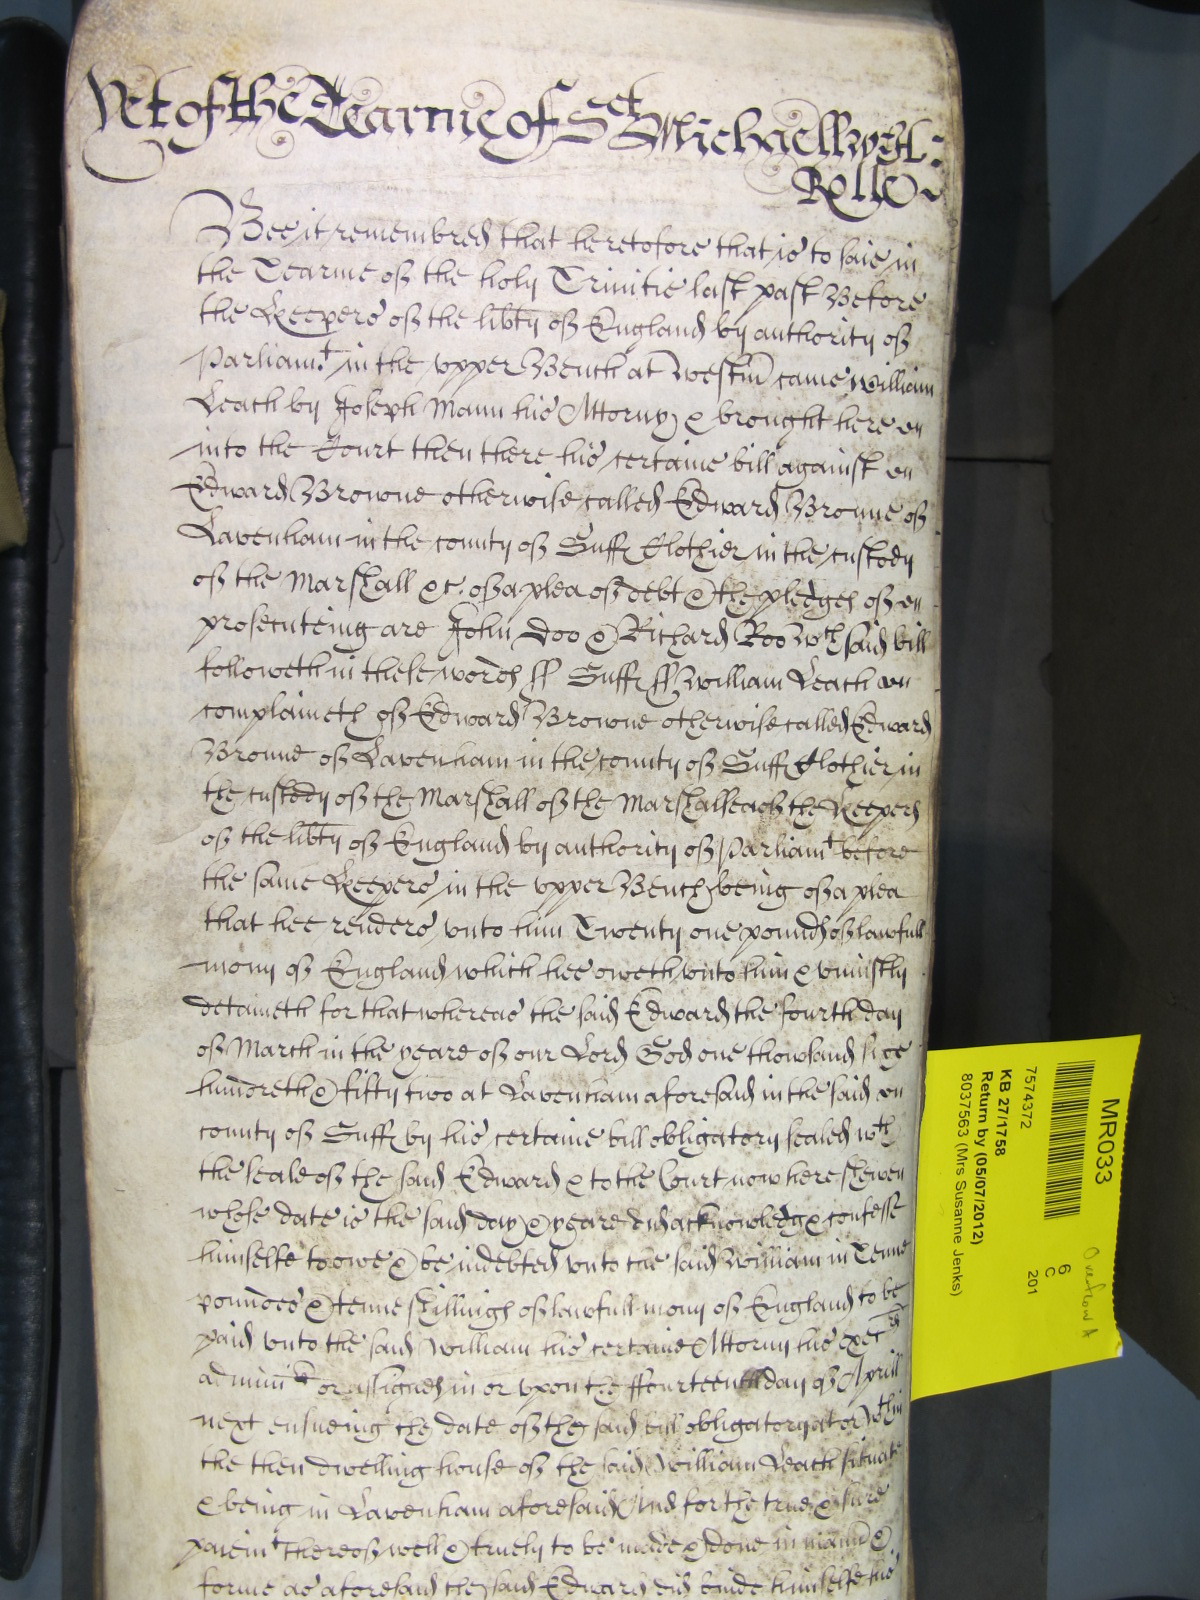 Yet of the Tearme of Sct Michaell wth
Rolle
Bee it remembred that heretofore that is to saie in
the Tearme of the holy Trinitie last past Before
the Keepers of the libtty of England by authority of
Parliamt in the vpper Bench at Westm came William
Leach by Joseph Mann his Attorny & brought here
into the Court then there his certaine bill against
Edward Browne otherwise called Edward Bronne of
Lavenham in the county of Suff Clothier in the custody
of the Marshall &c. of a plea of debt & the pledges of
prosecuteing are John Doo & Richard Roo wch said bill
followeth in these words ss Suff ss William Leach
complaineth of Edward Browne otherwise called Edward
Bronne of Lavenham in the county of Suff Clothier in
the custody of the Marshall of the Marshalsea of the Keepers
of the libtty of England by authority of Parliamt before
the same Keepers in the vpper Bench being of a plea
that hee renders vnto him Twenty one pounds of lawfull
mony of England which hee oweth vnto him & vniustly
detaineth for that whereas the said Edward the fourth day
of March in the yeare of our Lord God one thowsand sixe
hundreth & fifty two at Lavenham aforesaid in the said
county of Suff by his certaine bill obligatory sealed wth
the seale of the said Edward & to the Court now here shewen
whose date is the said day & yeare did acknowledg & confesse
himselfe to owe & be indebted vnto the said William in Tenne
poundes & tenne shillings of lawfull mony of England to be
paid vnto the said William his certaine Attorny his exec
admin or assignes in or vpon the ffourteenth day of Aprill
next ensueing the date of the said bill obligatory at or wthin
the then dwelling house of the said William Leach situate
& being in Lavenham aforesaid And for the true & sure
paiemt thereof well & truely to be made & done in mann &
forme as aforesaid the said Edward did binde himselfe his
MR033
7574372
KB 27/1758
Return by (05/07/2012)
8037563 (Mrs Susanne Jenks)
6
C
201
Overflow A